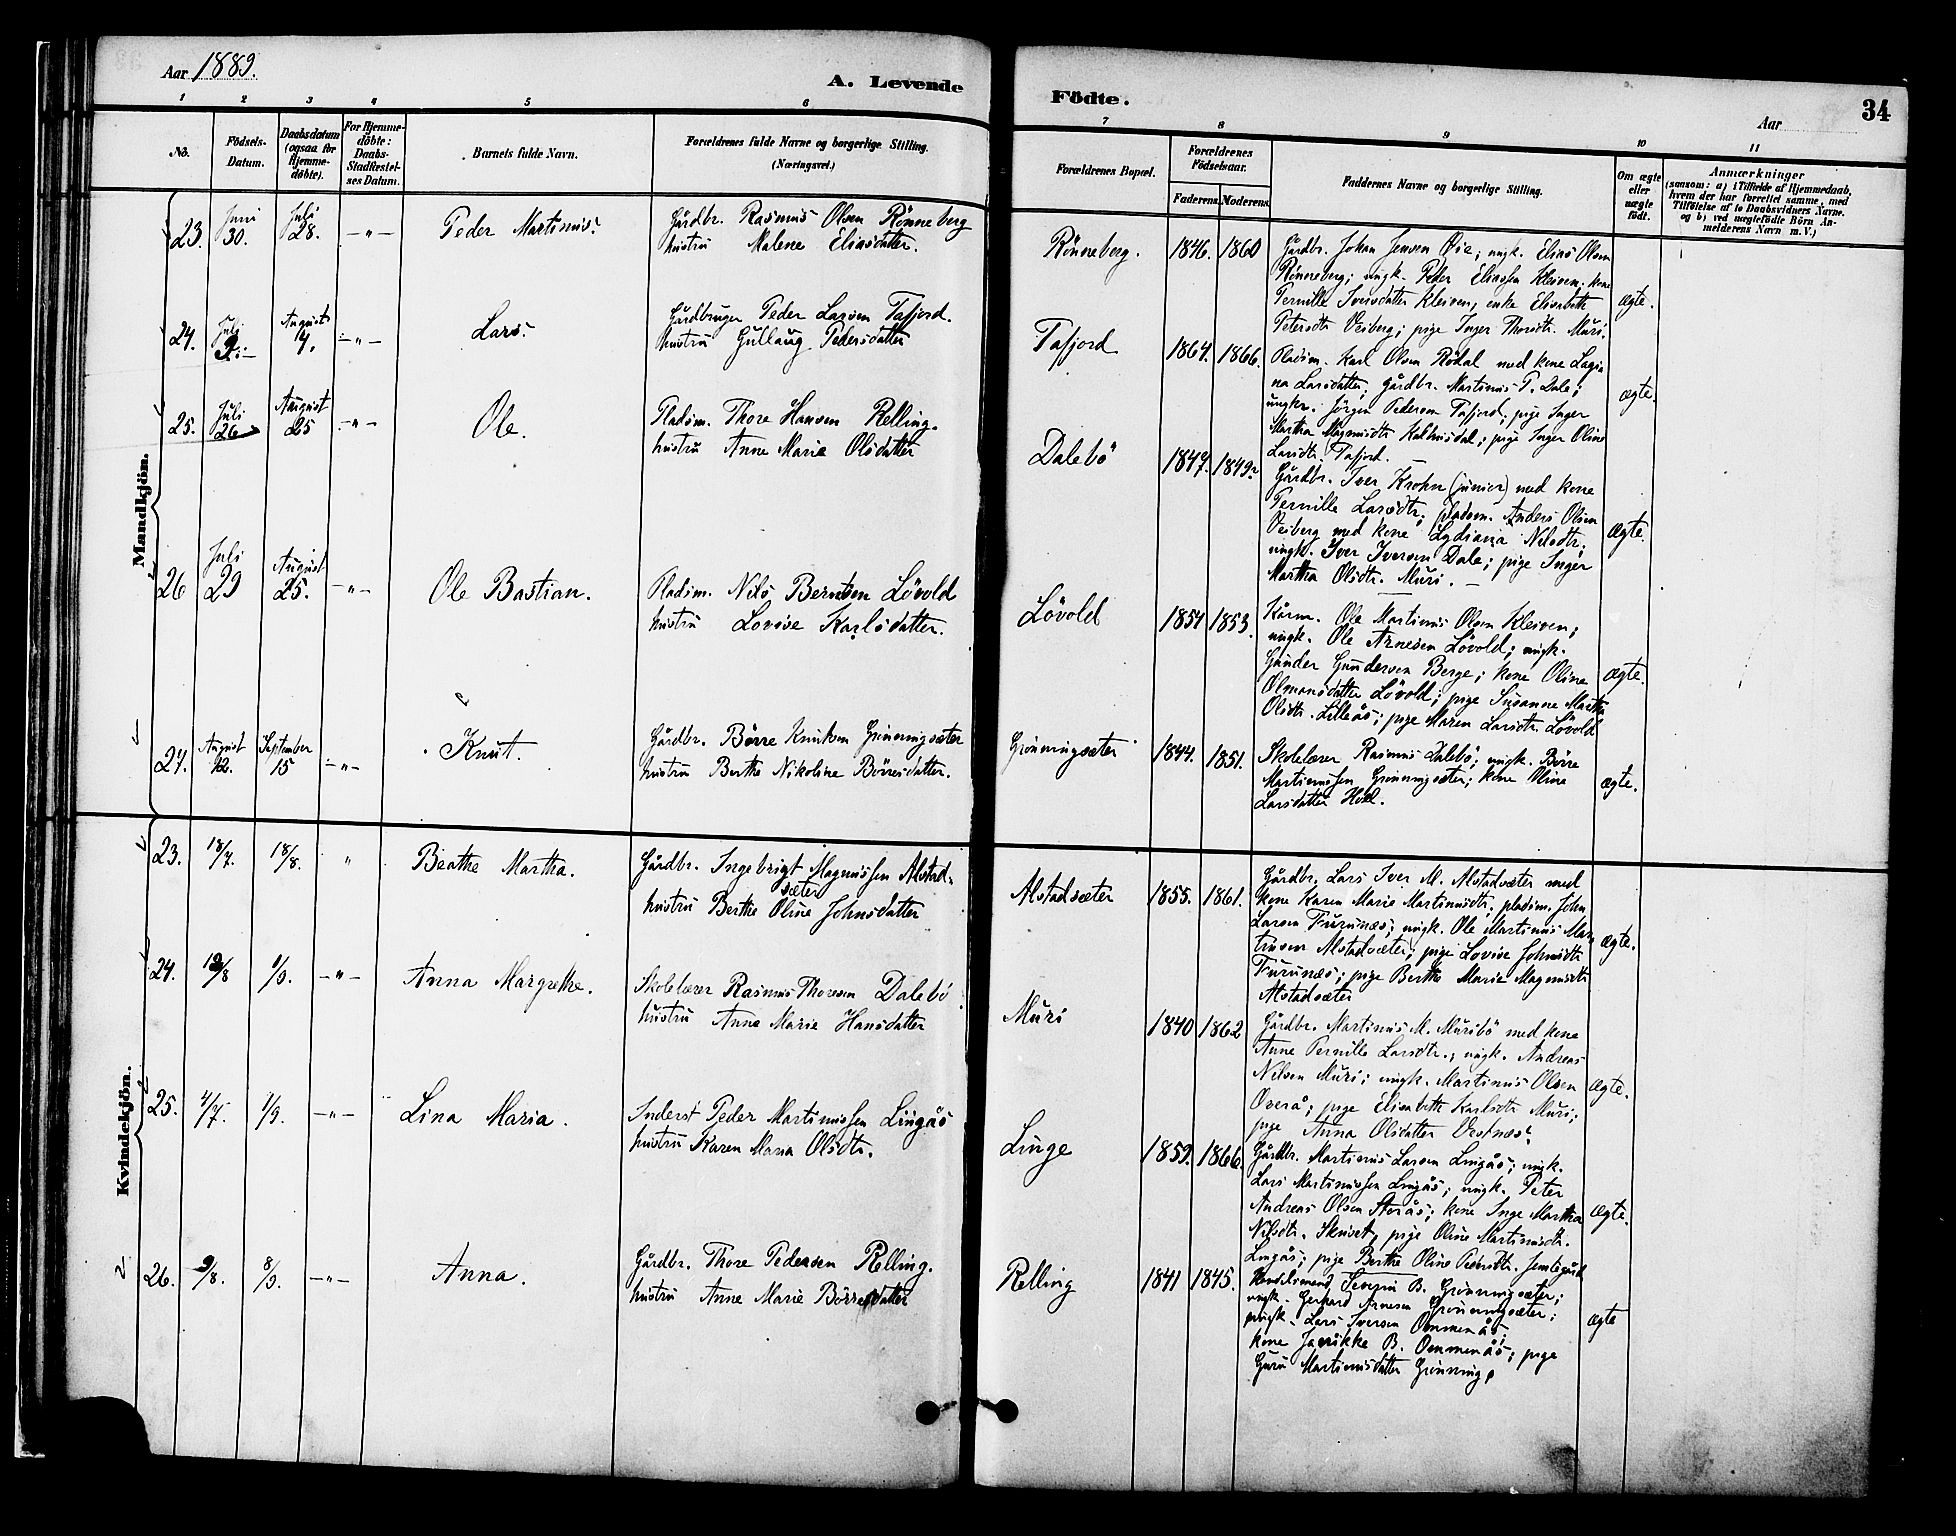 Aar 1889.
A. Levende
Födte.
Aar
34
1 2 3 4 5 6 7 8 9 10 11
No.
Födsels-
Datum.
Daabsdatum
(ogsaa for
Hjemme-
döbte).
For Hjemme-
döbte:
Daabs-
Stadfæstel-
ses Datum.
Barnets fulde Navn.
Forældrenes fulde Navne og borgerlige Stilling.
(Næringsvei.)
Forældrenes Bopæl.
Forældrenes
Födselsaar.
Faderens.
Moderens.
Faddernes Navne og borgerlige Stilling.
Om ægte
eller
uægte
födt.
Anmærkninger
(saasom: a) i Tilfælde af Hjemmedaab,
hvem der har forrettet samme, med
Tilföielse af to Daabsvidners Navne.
og b) ved uægtefödte Börn An-
melderens Navn m. V.)
Mandkjön.
23. Juni 30. Juli 28. -"- Peder Martinus.
Gårdbr. Rasmus Olsen Rönneberg
hustru Malene Eliasdatter.
Rönneberg. 1846. 1860
Gårdbr. Johan Jensen Öie; ungk. Elias Olsen
Rönneberg; ungk. Peder Eliassen Kleiven. kone
Pernille Iversdatter Kleiven, enke Elisabeth
Petersdtr Veiberg; pige Inger Thorsdtr. Muri.
ægte.
24. Juli 9. August 4. -"- Lars.
Gårdbruger Peder Larsen Tafjord.
hustru Gullaug Pedersdatter
Tafjord 1864. 1866.
Pladsm. Karl Olsen Rödal med kone Lagi-
na Larsdatter, gårdbr. Martinus P. Dale;
ungkr. Jörgen Pedersen Tafjord; pige Inger
Martha Magnusdtr Kalhusdal; pige Inger Oline
Larsdtr. Tafjord.
ægte.
25. Juli 26 August 25 -"- Ole.
Pladsm. Thore Hansen Relling.
hustru Anne Marie Olsdatter
Dalebö 1847. 1849.
Gårdbr. Iver Krohn (junior) med kone
Pernille Larsdtr; pladsm. Anders Olsen
Veiberg med kone Lydiana Nilsdtr;
ungk. Iver Iversen Dale; pige Inger
Martha Olsdtr. Muri. -
ægte.
26 Juli 29 August 25. -"- Ole Bastian.
Pladsm. Nils Berntsen Lövold
hustru Lovise Karlsdatter.
Lövold 1854 1853.
Kårm. Ole Martinus Olsen Kleiven;
ungk. Ole Arnesen Lövold; ungk.
Gunder Gundersen Berge; kone Oline
Olmansdatter Lövold; pige Susanne Martha
Olsdtr. Lilleås; pige Maren Larsdtr. Lövold
ægte.
27. August 12. September 15 -"- Knut.
Gårdbr. Börre Knutsen Grönningsæter
hustru Berthe Nikoline Börresdatter.
Grönningsæter 1844. 1851.
Skolelærer Rasmus Dalebö; ungk. Börre
Martinussen Grönningsæter; kone Oline
Larsdatter Hoel.
ægte.
Kvindekjön.
23. 18/7. 18/8. " Beathe Martha.
Gårdbr. Ingebrigt Magnussen Alstad-
sæter
hustru Berthe Oline Johnsdatter
Alstadsæter 1855. 1861.
Gårdbr. Lars Iver M. Alstadsæter med
kone Karen Marie Martinusdtr, pladsm. John
Larsen Furunæs; ungk. Ole Martinus Mar-
tinsen Alstadsæter; pige Lovise Johnsdtr
Furunæs; pige Berthe Marie Magnusdtr
Alstadsæter
ægte.
24. 12/8 1/9. -"- Anna Margrethe.
Skolelærer Rasmus Thoresen Dalebö
hustru Anne Marie Hansdatter
Muri 1840 1862
Gårdbr. Martinus M. Muribö med kone
Anne Pernille Larsdtr.; ungk. Andreas
Nilsen Muri; ungk. Martinus Olsen
Overå; pige Elisabeth Karlsdtr Muri;
pige Anna Olsdatter Vestnæs.
ægte.
25. 4/7. 1/9. -"- Lina Maria.
Inderst Peder Martinussen Lingås
hustru Karen Maria Olsdtr.
Linge 1859. 1866.
Gårdbr. Martinus Larsen Lingås; ungk.
Lars Martinussen Lingås; ungk. Peter
Andreas Olsen Storås; kone Inge Martha
Nilsdtr. Skuset, pige Oline Martinusdtr.
Lingås; pige Berthe Oline Pedersdtr.
ægte.
26. 9/8. 8/9. -"- Anna.
Gårdbr. Thore Pedersen Relling.
hustru Anne Marie Börresdatter
Relling 1841 1845.
Handelsmand Severin B. Grönningsæter;
ungk. Gerhard Arnesen Grönningsæter;
ungk. Lars Iversen Ommenås;
kone Jacrikke B. Ommenås; pige
Guru Martinusdatter Grönning.
ægte